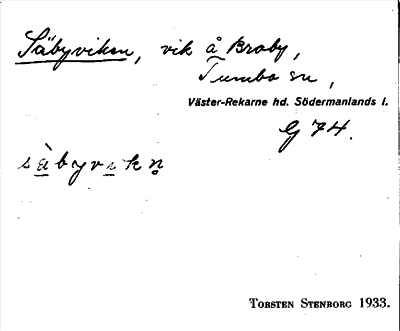 Säbyviken, vik å Braby,
Tumbo sn,
Väster-Rekarne hd. Södermanlands l.
G 74.
sàbyvikn̥
Torsten Stenborg 1933.